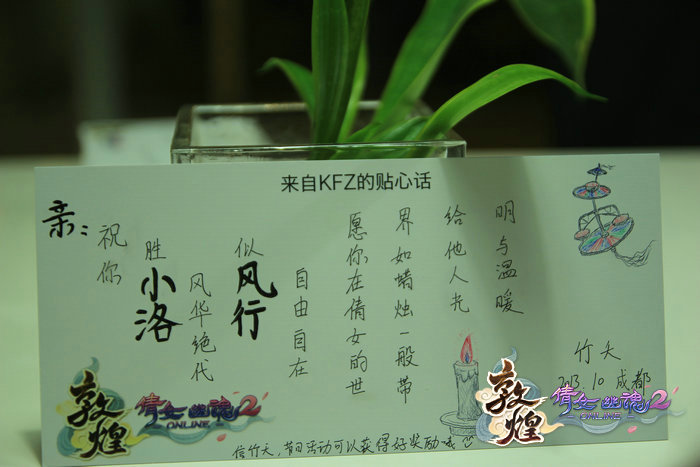 来自KFZ的贴心话
亲：
祝你
胜小洛
风华绝代
似风行
自由自在
愿你在倩女的世
界如蜡烛一般带
给他人光
明与温暖
竹夭
2013.10 成都
敦煌
倩女幽魂2
ONLINE
敦煌
倩女幽魂2
ONLINE
信竹夭，节日活动可以获得好奖励哦